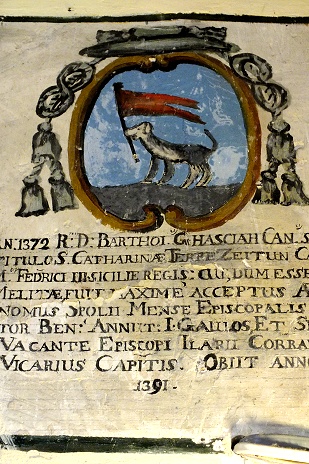 N. 1372 R.D. D: BARTHOL. GHASCIAH CAN. S
TITULO S. CATHARINÆ TERRÆ ZEITUN CA
M. FEDRICI III. SICILIE REGIS: CUI, DUM ESSE
MELITÆ, FUIT MAXIME ACCEPTUS A
NOMUS SPOLII MENSE EPISCOPALIS
TOR BEN: ANNIT: I: GALLOS, ET S
VACANTE EPISCOPI ILARII CORRA
VICARIUS CAPITIS. OBIIT ANNO
1391.